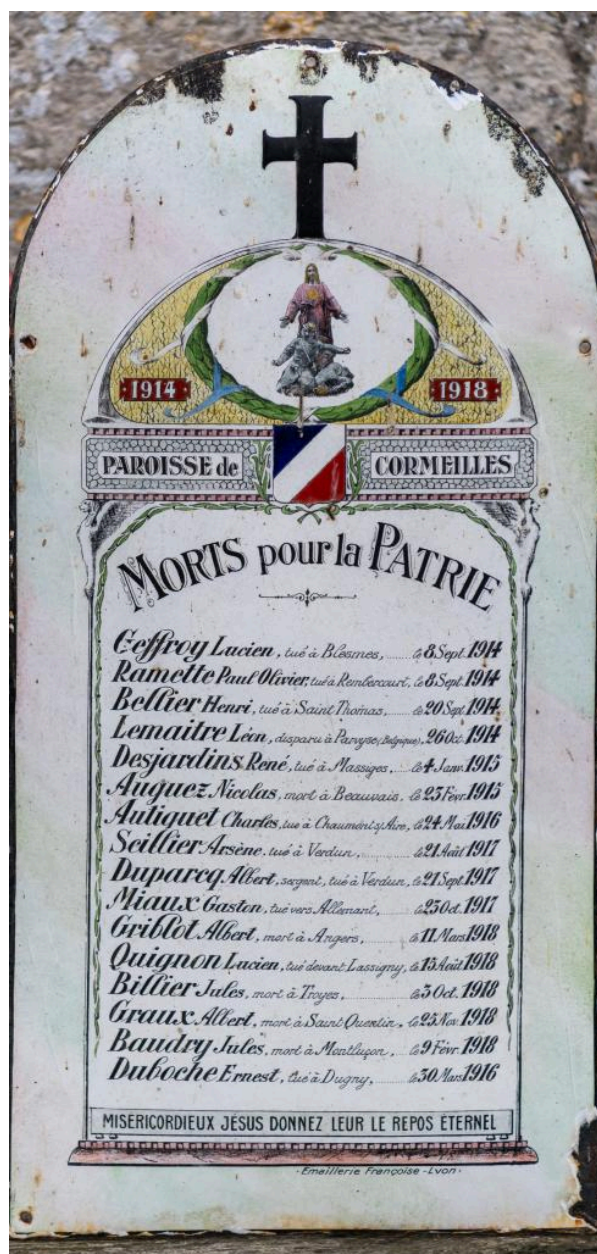 1914 1918
PAROISSE de CORMEILLES
MORTS pour la PATRIE
Geffroy Lucien, tué à Blesmes, ........ le 8 Sept. 1914
Ramette Paul Olivier, tué à Rembercourt, le 8 Sept. 1914
Bellier Henri, tué à Saint Thomas, ........ le 20 Sept. 1914
Lemaitre Léon, disparu à Parvyse (Belgique), 26 Oct. 1914
Desjardins René, tué à Massiges, ..... le 4 Janv. 1915
Auguez Nicolas, mort à Beauvais, le 23 Févr. 1915
Autiguet Charles, tué à Chaumont s/Aire, le 24 Mai 1916
Seillier Arsène, tué à Verdun, ........ le 21 Août 1917
Duparcq Albert, sergent, tué à Verdun, le 21 Sept. 1917
Miaux Gaston, tué vers Allemant, ........ le 23 Oct. 1917
Griblot Albert, mort à Angers, ........ le 11 Mars 1918
Quignon Lucien, tué devant Lassigny, le 15 Août 1918
Billier Jules, mort à Troyes, ........ le 3 Oct. 1918
Graux Albert, mort à Saint Quentin, le 25 Nov. 1918
Baudry Jules, mort à Montluçon, .. le 9 Févr. 1918
Duboche Ernest, tué à Dugny, ........ le 30 Mars 1916
MISERICORDIEUX JÉSUS DONNEZ LEUR LE REPOS ÉTERNEL
· Emaillerie Françoise - Lyon ·